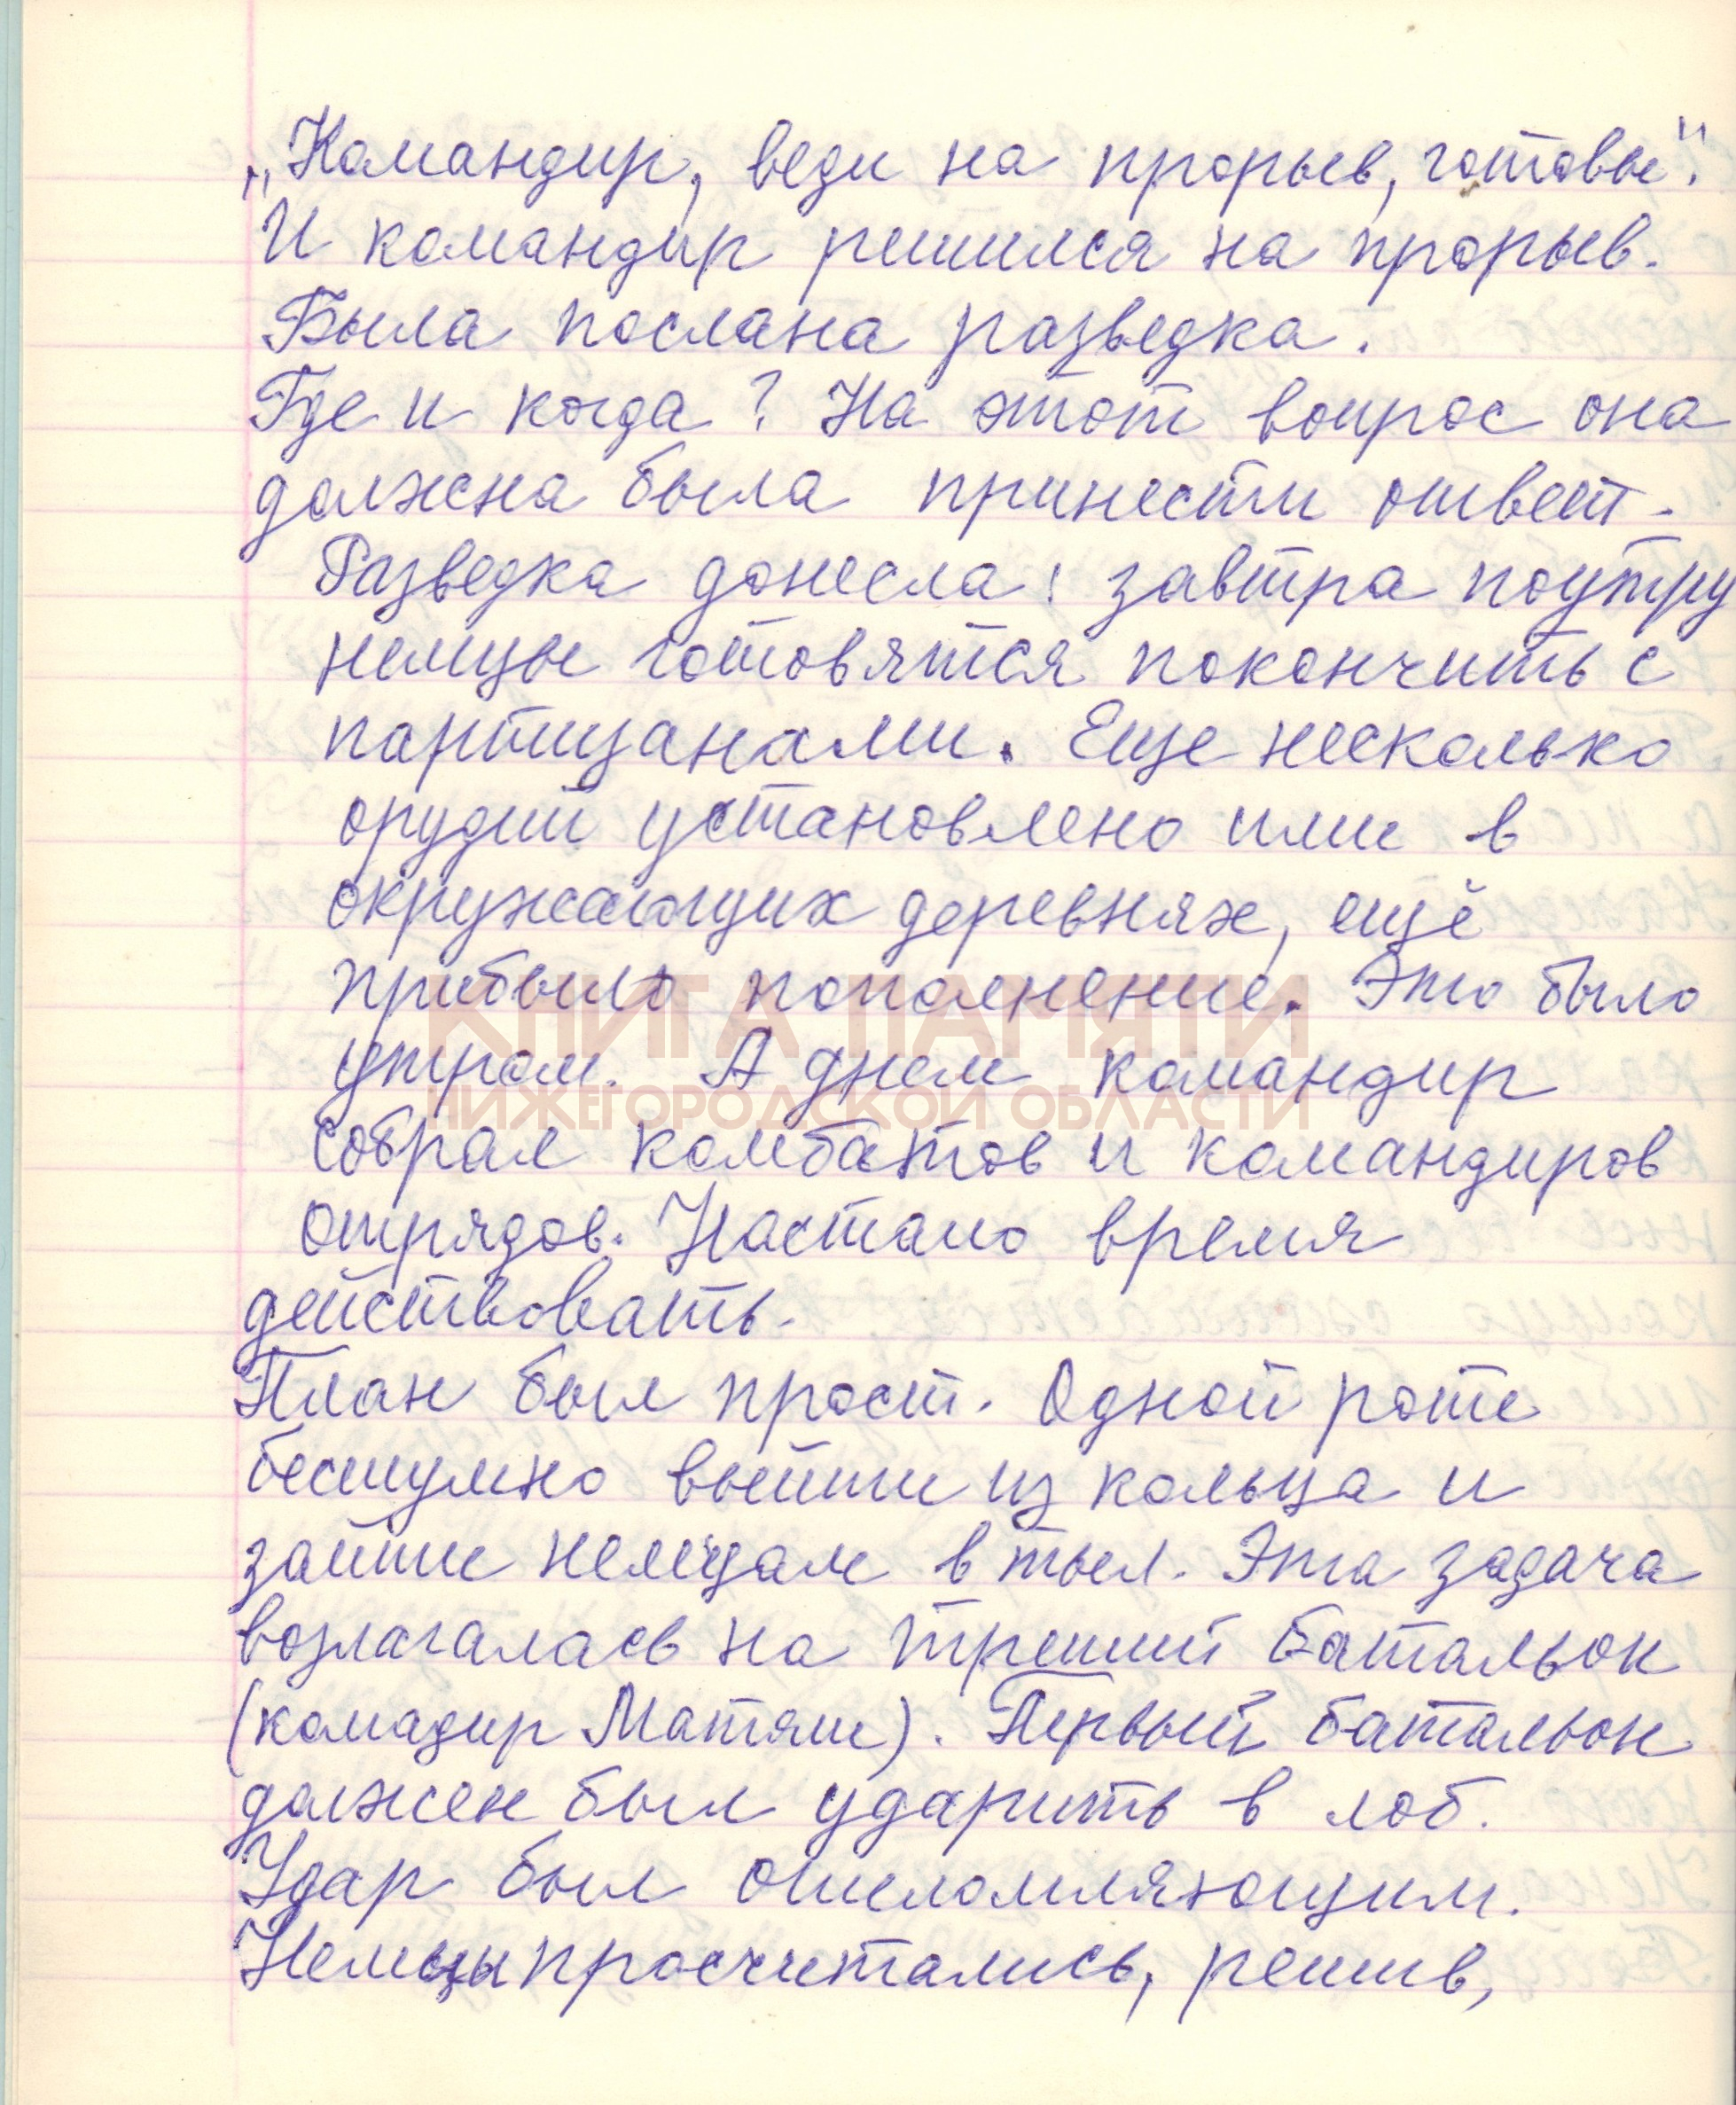 „Командир, веди на прорыв, готовы".
И командир решился на прорыв.
Была послана разведка.
Где и когда? На этот вопрос она
должна была принести ответ.
Разведка донесла: завтра поутру
немцы готовятся покончить с
партизанами. Еще несколько
орудий установлено ими в
окружающих деревнях, ещё
прибыло пополнение. Это было
утром. А днем командир
собрал комбатов и командиров
отрядов. Настало время
действовать.
План был прост. Одной роте
бесшумно выйти из кольца и
зайти немцам в тыл. Эта задача
возлагалась на третий батальон
(комадир Матяш). Первый батальон
должен был ударить в лоб.
Удар был ошеломляющим.
Немцы просчитались, решив,
КНИГА ПАМЯТИ
НИЖЕГОРОДСКОЙ ОБЛАСТИ